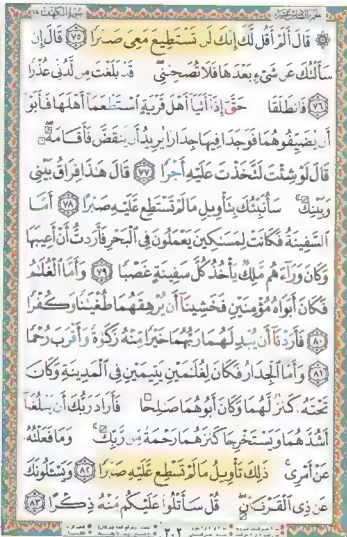 سورة الكهف ١٨
۞ قَالَ أَلَمْ أَقُل لَّكَ إِنَّكَ لَن تَسْتَطِيعَ مَعِيَ صَبْرًا ٧٥ قَالَ إِن
سَأَلْتُكَ عَن شَيْءٍ بَعْدَهَا فَلَا تُصَاحِبْنِي قَدْ بَلَغْتَ مِن لَّدُنِّي عُذْرًا
٧٦ فَانطَلَقَا حَتَّىٰ إِذَا أَتَيَا أَهْلَ قَرْيَةٍ اسْتَطْعَمَا أَهْلَهَا فَأَبَوْا
أَن يُضَيِّفُوهُمَا فَوَجَدَا فِيهَا جِدَارًا يُرِيدُ أَن يَنقَضَّ فَأَقَامَهُ
قَالَ لَوْ شِئْتَ لَتَّخَذْتَ عَلَيْهِ أَجْرًا ٧٧ قَالَ هَٰذَا فِرَاقُ بَيْنِي
وَبَيْنِكَ سَأُنَبِّئُكَ بِتَأْوِيلِ مَا لَمْ تَسْتَطِع عَّلَيْهِ صَبْرًا ٧٨ أَمَّا
السَّفِينَةُ فَكَانَتْ لِمَسَاكِينَ يَعْمَلُونَ فِي الْبَحْرِ فَأَرَدتُّ أَنْ أَعِيبَهَا
وَكَانَ وَرَاءَهُم مَّلِكٌ يَأْخُذُ كُلَّ سَفِينَةٍ غَصْبًا ٧٩ وَأَمَّا الْغُلَامُ
فَكَانَ أَبَوَاهُ مُؤْمِنَيْنِ فَخَشِينَا أَن يُرْهِقَهُمَا طُغْيَانًا وَكُفْرًا
٨٠ فَأَرَدْنَا أَن يُبْدِلَهُمَا رَبُّهُمَا خَيْرًا مِّنْهُ زَكَاةً وَأَقْرَبَ رُحْمًا
٨١ وَأَمَّا الْجِدَارُ فَكَانَ لِغُلَامَيْنِ يَتِيمَيْنِ فِي الْمَدِينَةِ وَكَانَ
تَحْتَهُ كَنزٌ لَّهُمَا وَكَانَ أَبُوهُمَا صَالِحًا فَأَرَادَ رَبُّكَ أَن يَبْلُغَا
أَشُدَّهُمَا وَيَسْتَخْرِجَا كَنزَهُمَا رَحْمَةً مِّن رَّبِّكَ وَمَا فَعَلْتُهُ
عَنْ أَمْرِي ذَٰلِكَ تَأْوِيلُ مَا لَمْ تَسْطِع عَّلَيْهِ صَبْرًا ٨٢ وَيَسْأَلُونَكَ
عَن ذِي الْقَرْنَيْنِ قُلْ سَأَتْلُو عَلَيْكُم مِّنْهُ ذِكْرًا ٨٣